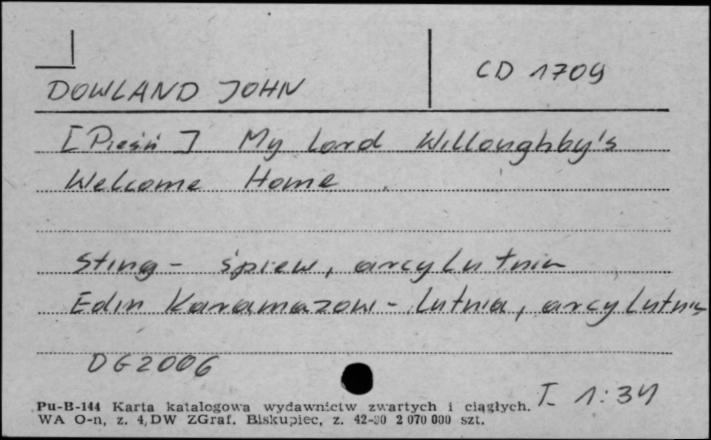 CD 1709
DOWLAND JOHN
[Pieśń] My Lord Willoughby's
Welcome Home.
Sting - śpiew, arcylutnia
Edin Karamazow - lutnia, arcylutnia
DG 2006
T. 1:34
Pu-B-144 Karta katalogowa wydawnictw zwartych i ciągłych.
WA O-n, z. 4, DW ZGraf. Biskupiec, z. 42-90 2 070 000 szt.